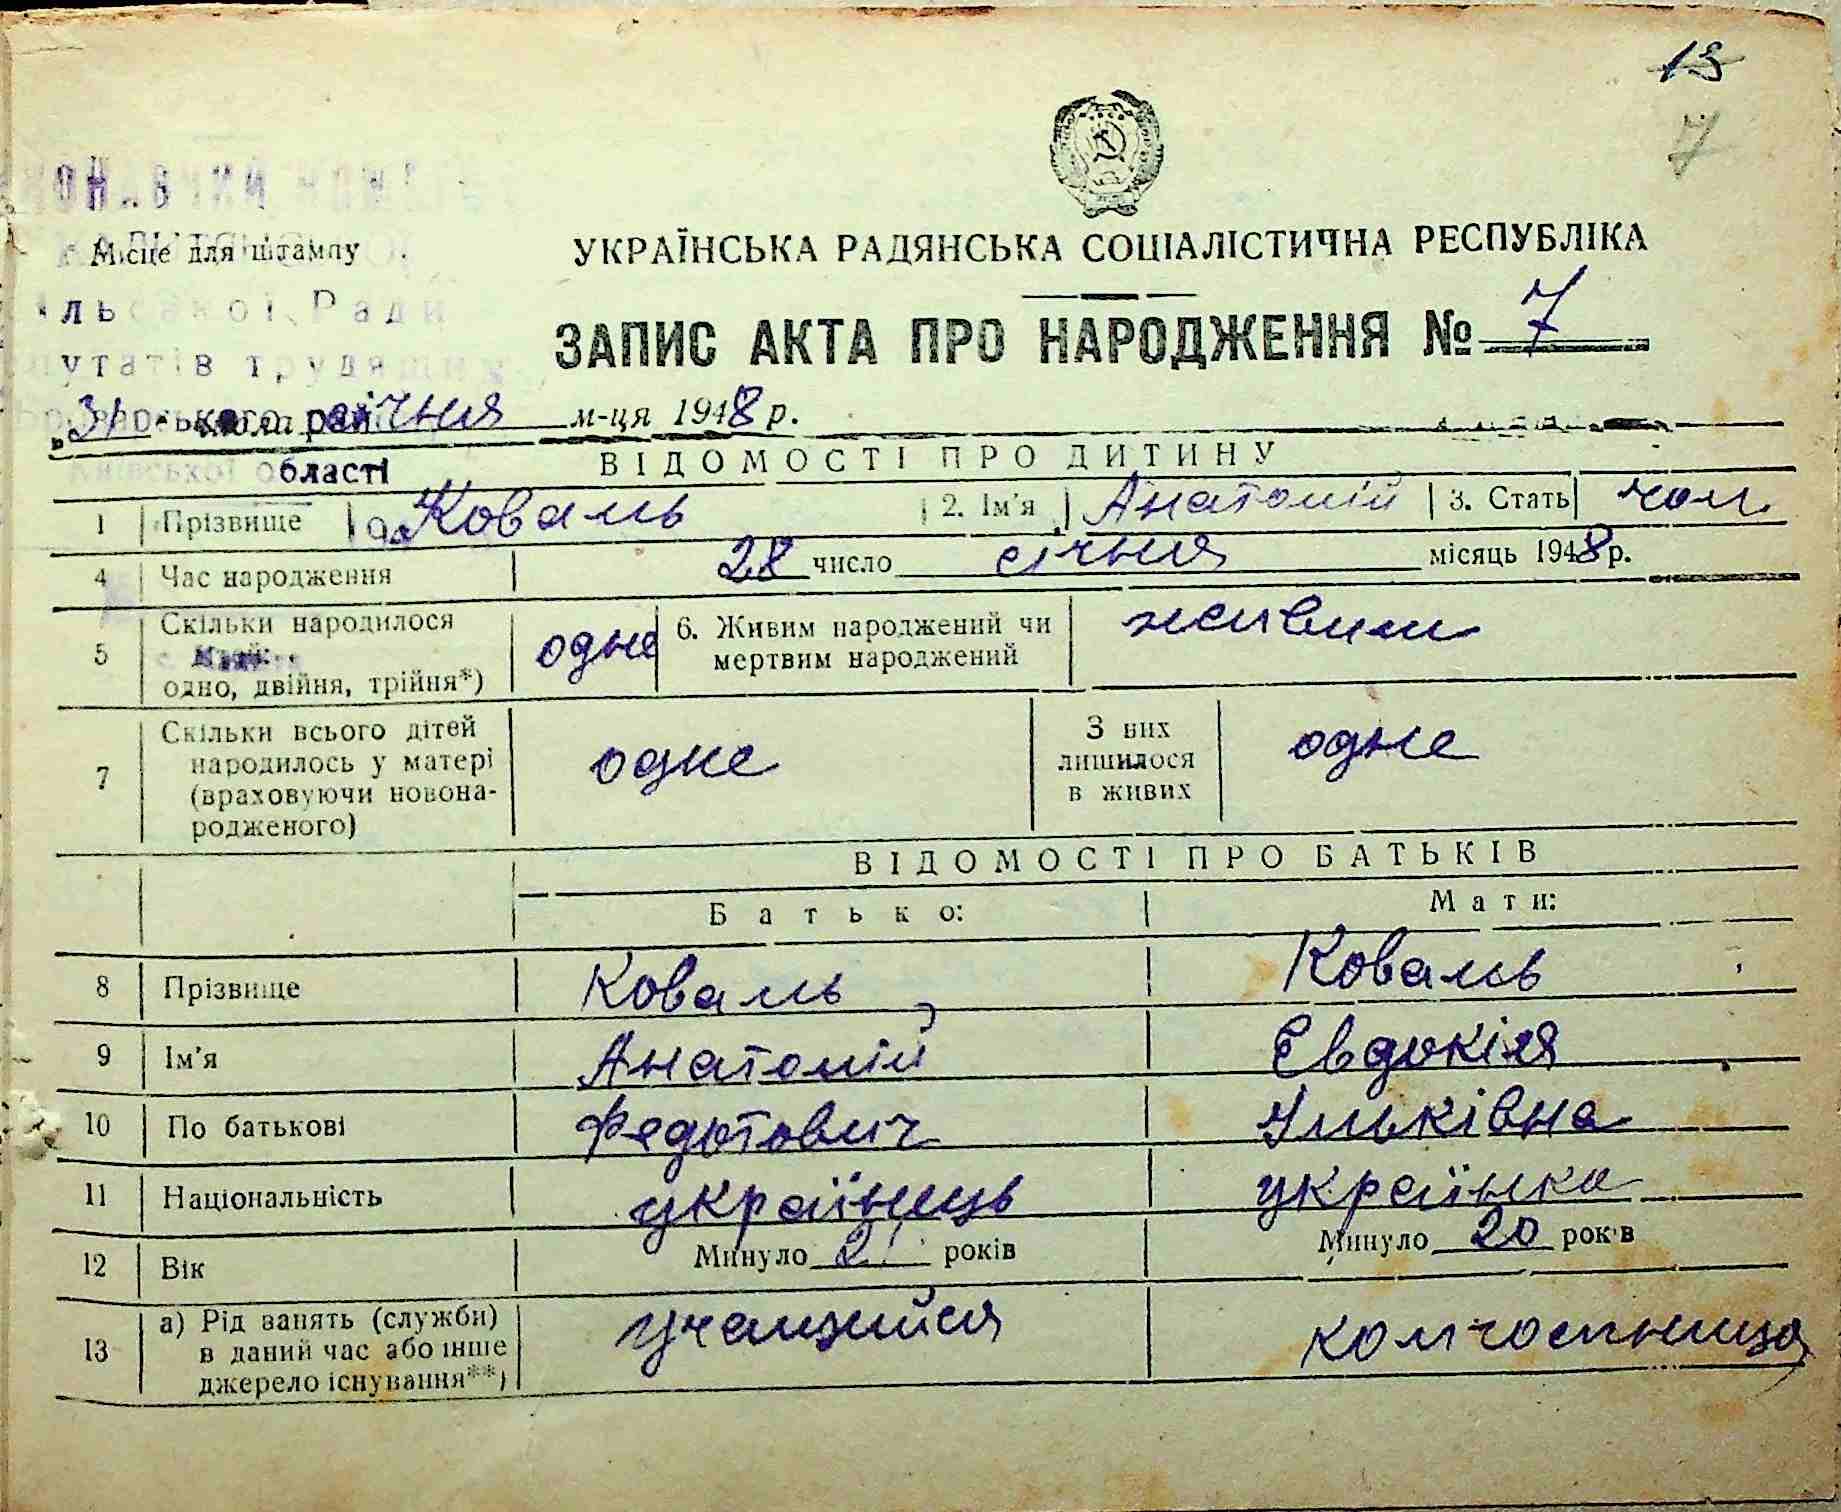 13
7
Місце для штампу
УКРАЇНСЬКА РАДЯНСЬКА СОЦІАЛІСТИЧНА РЕСПУБЛІКА
ільської Ради
ЗАПИС АКТА ПРО НАРОДЖЕННЯ № 7
путатів трудящих
„31" січня м-ця 1948 р.
Київської області
ВІДОМОСТІ ПРО ДИТИНУ
1 Прізвище Коваль 2. Ім'я Анатолій 3. Стать чол.
4 Час народження 28 число січня місяць 1948 р.
5 Скільки народилося
одно, двійня, трійня*) одне 6. Живим народжений чи
мертвим народжений живим
7 Скільки всього дітей
народилось у матері
(враховуючи новона-
родженого) одне З них
лишилося
в живих одне
ВІДОМОСТІ ПРО БАТЬКІВ
Батько: Мати:
8 Прізвище Коваль Коваль
9 Ім'я Анатолій Євдокія
10 По батькові Федотович Ільківна
11 Національність українець українка
12 Вік Минуло 21 років Минуло 20 років
13 а) Рід занять (служби)
в даний час або інше
джерело існування**) учащийся колгоспниця